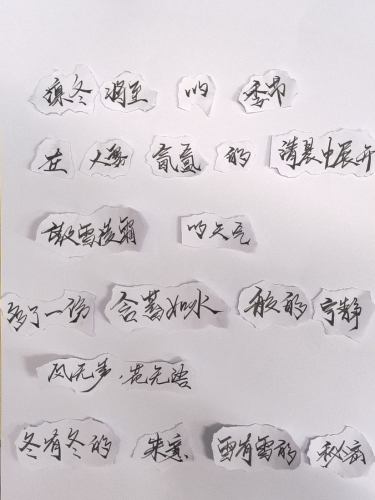 冬 至 的 季节
在 人 氤氲 的 清晨中展开
雪 的天气
多了一份 含蓄如水 般的 宁静
风无声，花无语
冬有冬的 来意 雪有雪的 秘密